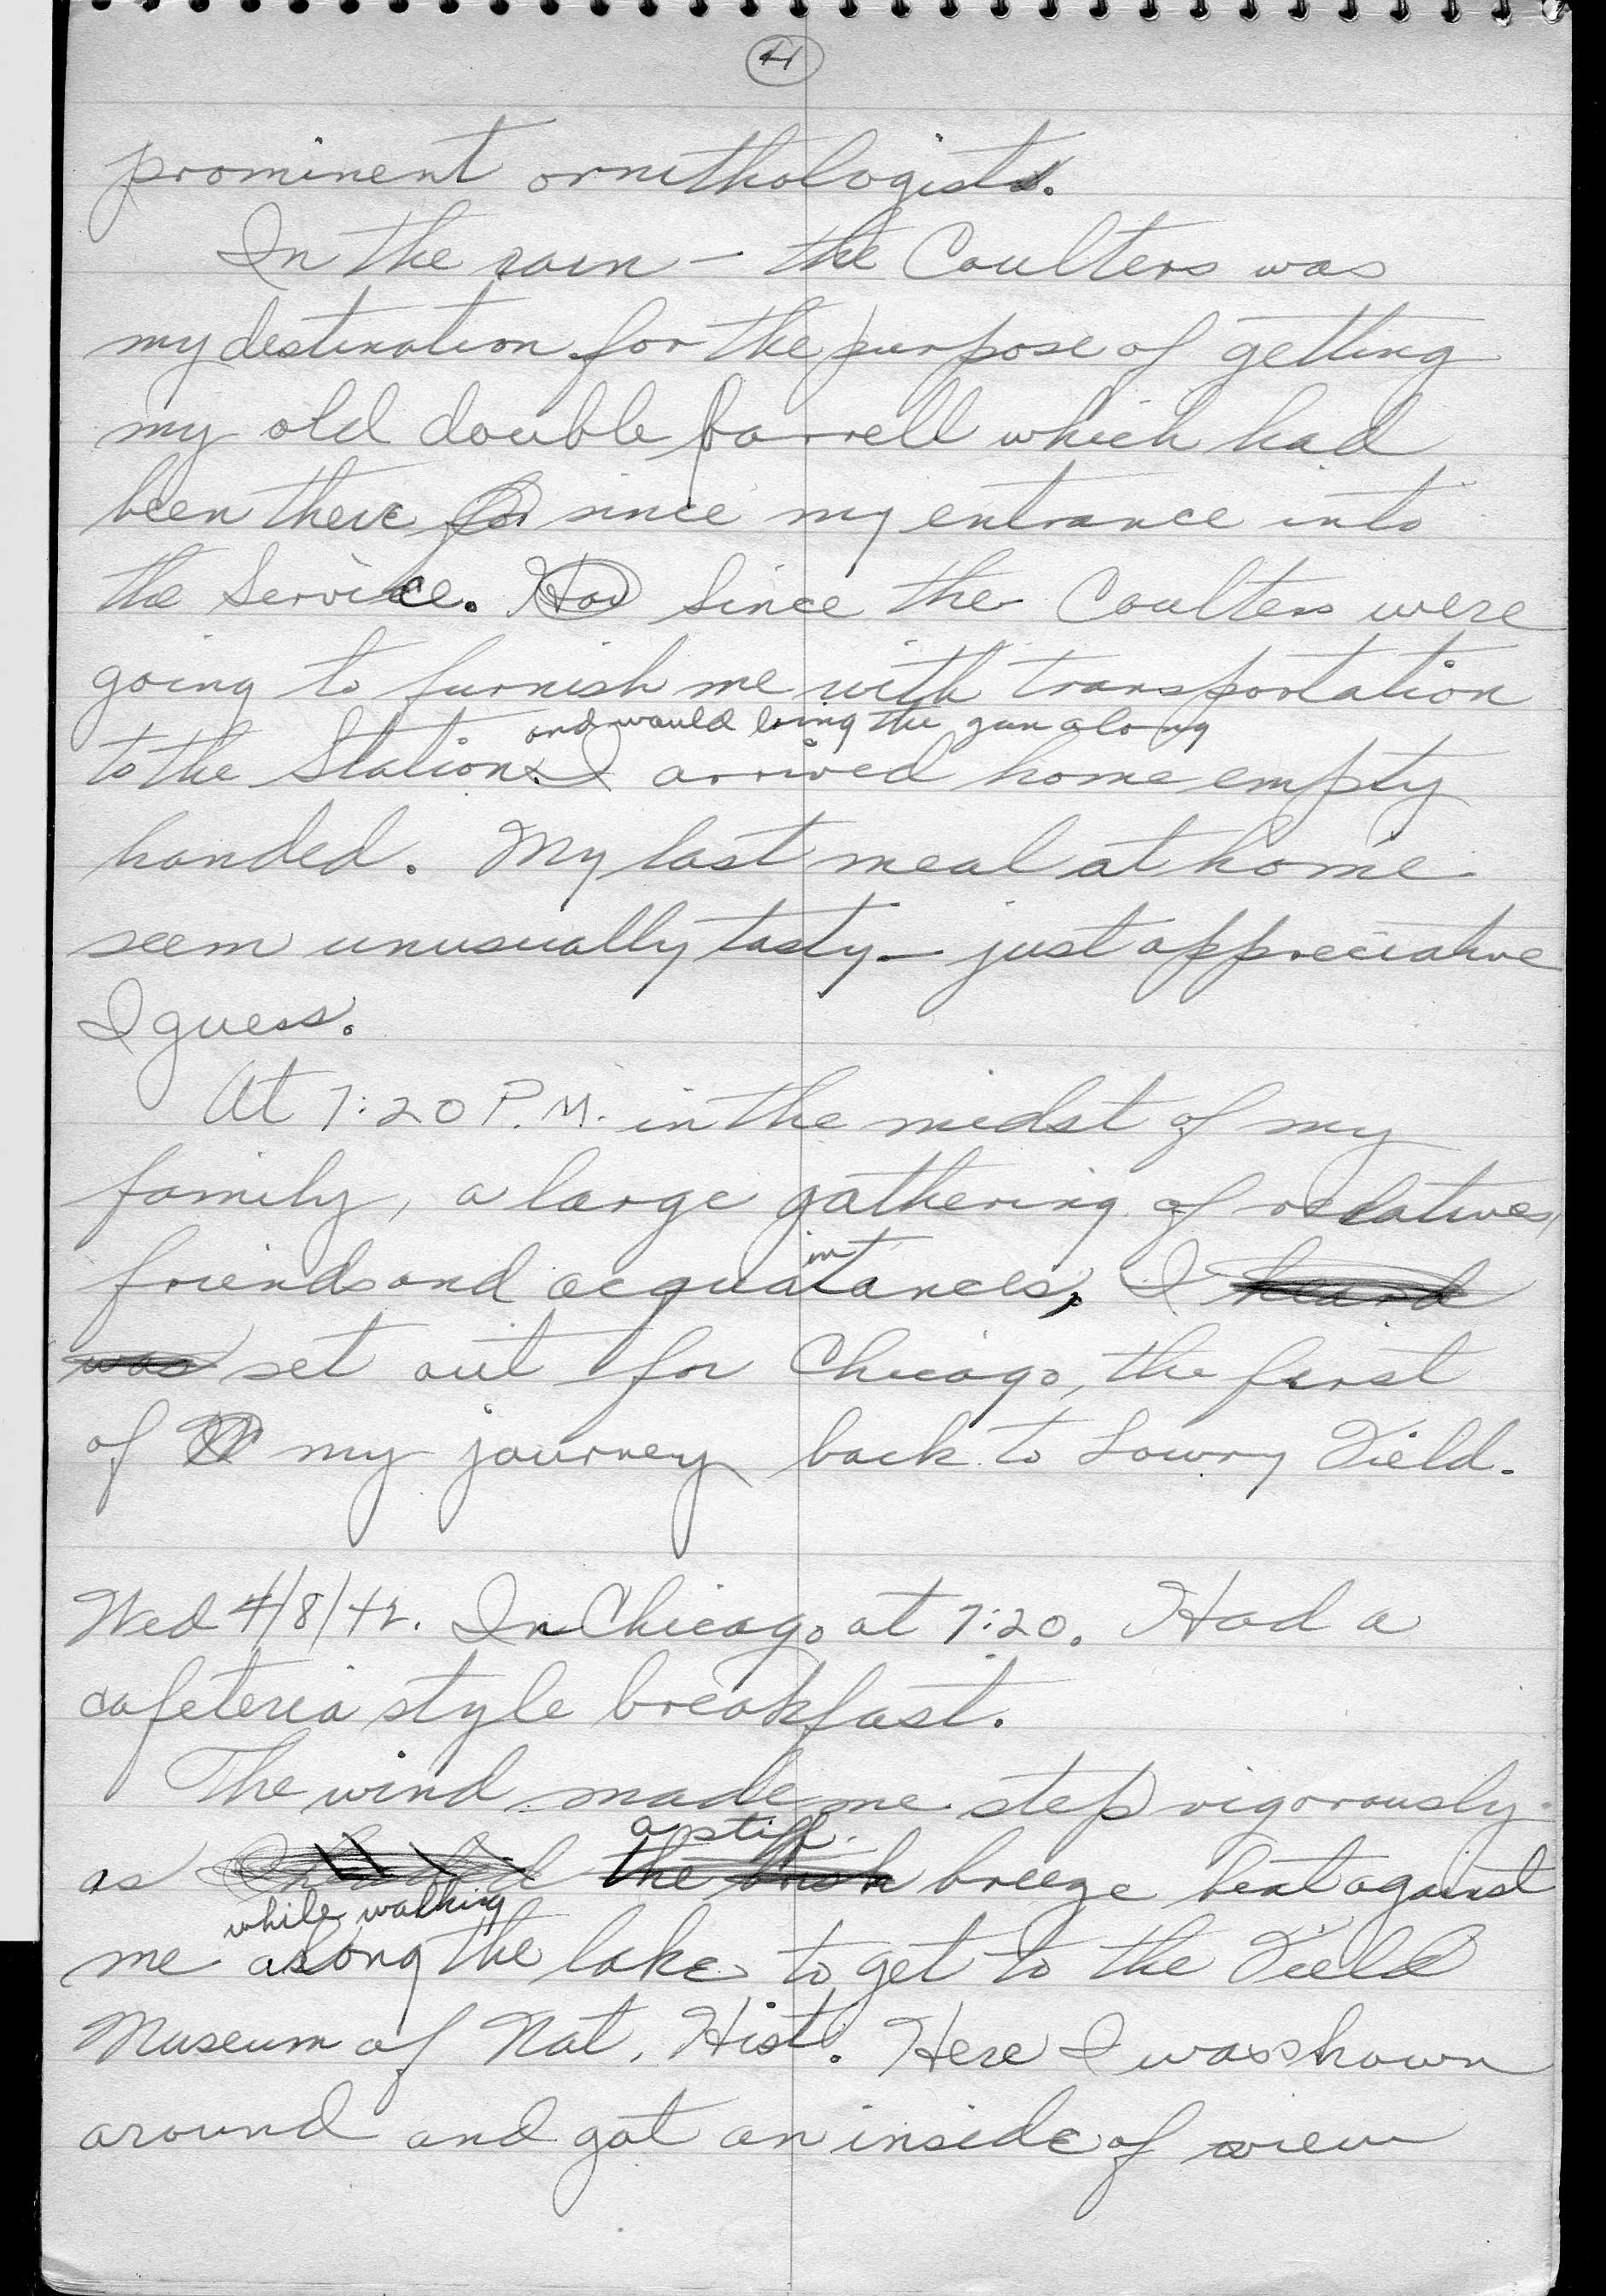 4
prominent ornithologists.
In the rain – the Coulters was
my destination for the purpose of getting
my old double barrell which had
been there for since my entrance into
the Service. Had Since the Coulters were
going to furnish me with transportation
and would bring the gun along
to the Station. I arrived home empty
handed. My last meal at home
seem unusually tasty – just appreciative
I guess.
At 7:20 P.M. in the midst of my
family, a large gathering of relatives,
in
friends and acquatances, I heard
was set out for Chicago, the first
of my journey back to Lowry Field.
Wed 4/8/42. In Chicago at 7:20. Had a
cafeteria style breakfast.
The wind made me step vigorously
a stiff
as the brisk breeze beat against
while walking
me along the lake to get to the Field
Museum of Nat. Hist. Here I was shown
around and got an inside of view